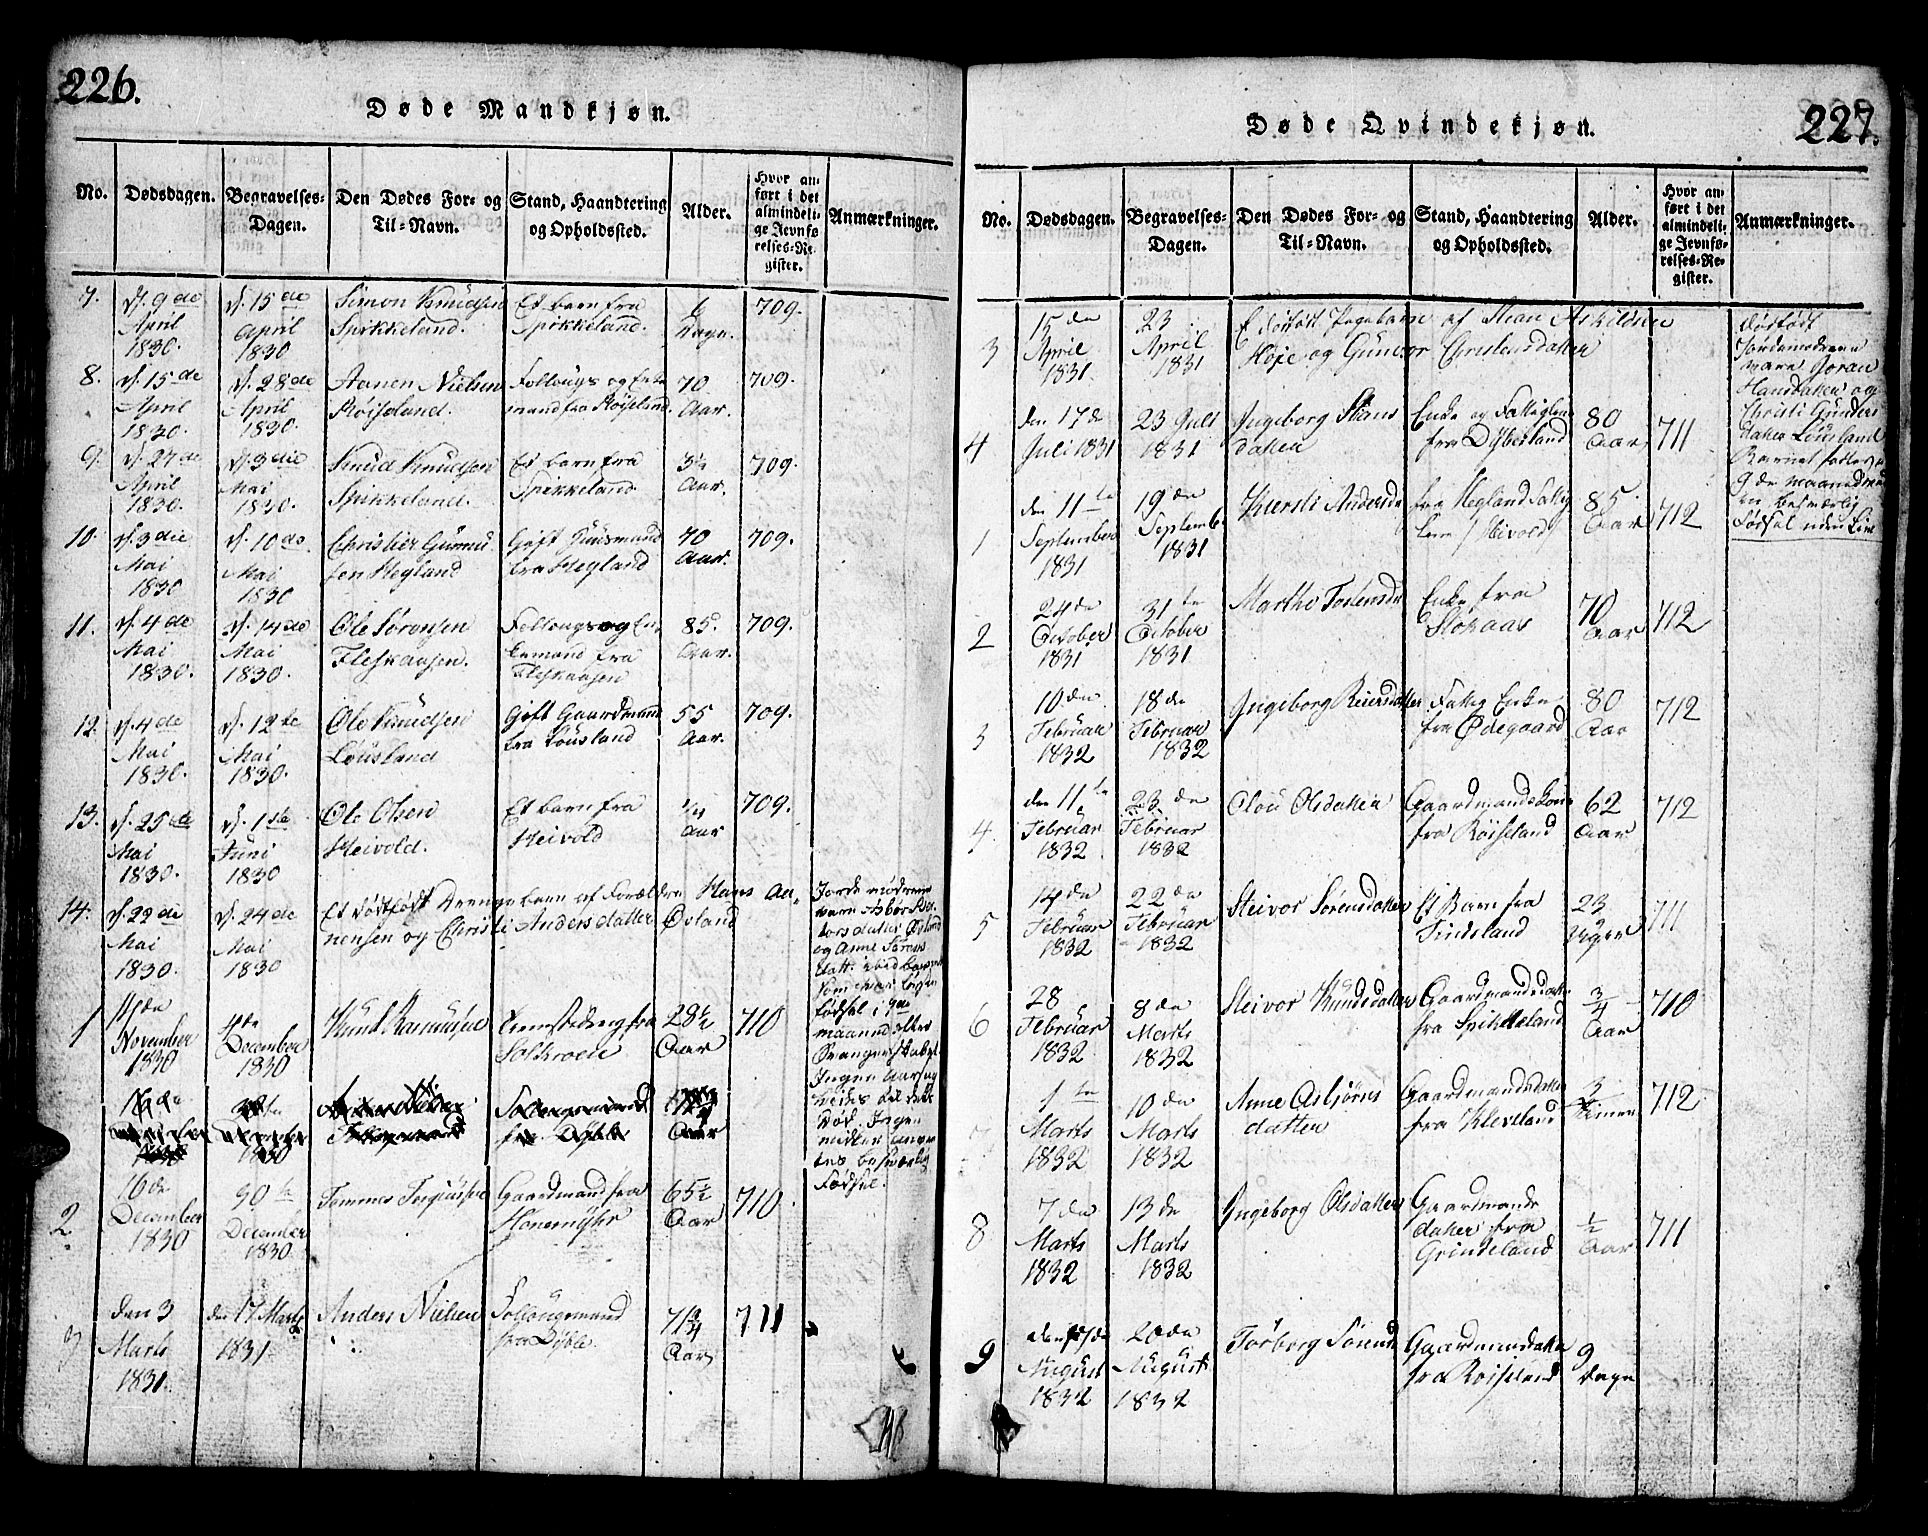 226.
Døde Mandkjøn.
No. Dødsdagen. Begravelses-Dagen. Den Dødes For- og Til-Navn. Stand, Haandtering og Opholdssted. Alder. Hvor anført i det almindelige Jevnførelses-Register. Anmærkninger.
7. d. 9de d. 15de Simon Knudsen Et barn fra 6 709.
April april Spikkeland. Spikkeland. Dage.
1830. 1830
8. d. 15de d. 28de Aanen Nielsen Follougs og Enke 70 709.
April April Røiseland. mand fra Røiseland Aar.
1830. 1830.
9. d. 27de d. 3die Knud Knudsen Et barn fra 3½ 709.
April Mai Spikkeland. Spikkeland. Aar.
1830. 1830.
10. d. 3die d. 10de Christier Gunnu Gift Huusmand 70 709.
Mai Mai sen Hegland fra Hegland Aar.
1830 1830
11. d. 4de d. 14de Ole Sørensen Follougs og En 85 709.
Mai Mai Fleskaasen. kemand fra Aar.
1830. 1830. Fleskaasen
12. d. 4de d. 12te Ole Knudsen Gift Gaardmand 55 709.
Mai Mai Løusland fra Løusland Aar.
1830. 1830.
13. d. 25de d. 1ste Ole Olsen Et barn fra 1/4 709.
Mai Juni Heivold. Heivold Aar
1830. 1830
14. d. 22de d. 24de Et dødfødt Drengebarn af Forældre Hans Aa-
Mai Mai nensen og Christi Andersdatter Øvland
1830. 1830
Jordemødrene
vare
datter Øvland
og Anne Sørens
datt.
fødsel i 9de
maaned efter
Svangerskabet
Ingen Aarsag
vides til dette
Død. Ingen
midler anven
tes besværlig
Fødsel.
1 14de 4de Knud Rasmusen fra 28½ 710
November December Aar
1830 1830
16de
1830 Aar
2 16de 30te Tommes Gaardmand fra 65½ 710
December December Honemyhr Aar
1830 1830.
3 den 3 den 17 Marts Anders Nielsen Follougsmand 71¾ 711
Marts 1831. fra Dyble. Aar
1831.
227.
Døde Qvindekjøn.
No. Dødsdagen. Begravelses-Dagen. Den Dødes For- og Til-Navn. Stand, Haandtering og Opholdssted. Alder. Hvor anført i det almindelige Jevnførelses-Register. Anmærkninger.
3 15de 23 Et dødfødt Pigebarn af Stian Askildsen
April April Høje og Gunvor Christensdatter
1831 1831
dødfødt
Jordemødrene
vare Goran
Hansdatter og
Christi Gunders
datter Løusland
Barnet
9de maaned
en besværlig
Fødsel uden Liv
4 den 17de 23 Juli Ingeborg Stians Enke og Fattiglem 80 711
Juli 1831 1831 datter fra Dybesland Aar
1 den 11te 19de Kiersti Andersda fra Hegland Fattig 85 712
September Septemb. lem / Heivold / Aar
1831 1831
2 24de 31te Marthe Enke fra 70 712
October October Stokaas Aar
1831 1831
3 10de 18de Ingeborg Reiersdatter Fattig Enke 80 712
Februar Februar fra Ødegaard Aar
1832 1832
4. den 11te 23de Olou Olsdatter Gaardmandskone 62 712
Februar Februar fra Røiseland Aar
1832 1832
5 14de 22de Steivor Sørensdatter Et Barn fra 23 711
Februar Februar Findsland Uger
1832 1832
6 28 8de Steivor Knudsdatter Gaardmandsdatter 3/4 710
Februar Marts fra Spikkeland Aar
1832 1832
7 1te 10de Anne Asbjørns Gaardmandsdatter 3 712
Marts Marts datter fra Kleveland Timer
1832 1832
8 7de 13de Ingeborg Olsdatter Gaardmands ½ 711
Marts Marts datter fra Aar
1832 1832 Grindeland
9 den 17de 20de Torborg Gaardmandsdatter 9
August August fra Røiseland dage
1832 1832